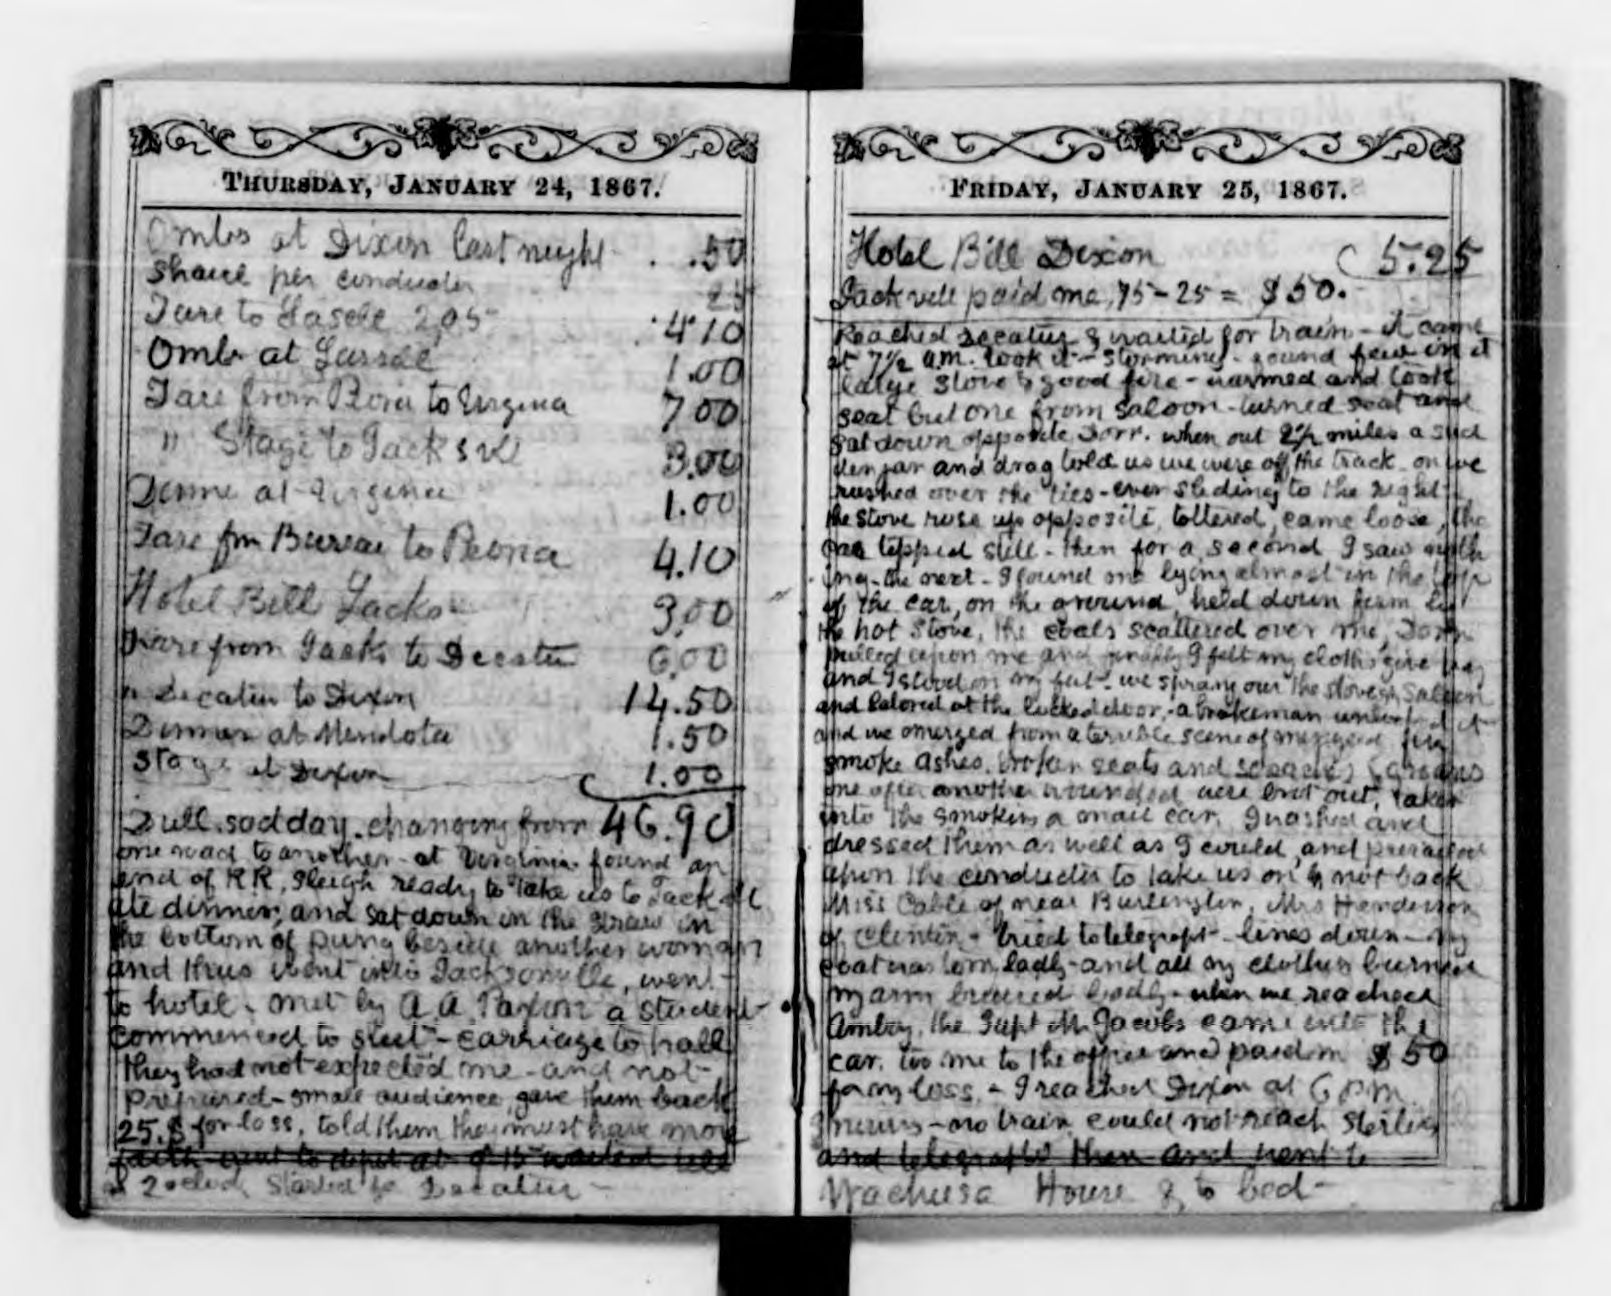 THURSDAY, JANUARY 24, 1867.
Ombs at Dixon last night . .50
Share per conductor 25
Fare to Lasalle 2,05 4.10
Omb at Lasalle 1.00
Fare from Peoria to Virginia 7 00
" Stage to Jacksvll 3.00
Dinner at Virginia 1.00
Fare fm Bureau to Peoria 4.10
Hotel Bill Jackso 3,00
Fare from Jacks to Decatur 6,00
" Decatur to Dixon 14.50
Dinner at Mendota 1.50
Stage at Dixon 1.00
Dull, sad day. changing from 46.90
one road to another - at Virginia found an
end of RR, sleigh ready to take us to Jack
ate dinner, and sat down in the straw in
the bottom of pung beside another woman
and thus went into Jacksonville, went
to hotel - met by A A Paxson a student
commenced to sleet - carriage to hall
they had not expected me - and not
prepared - small audience, gave them back
25.$ for loss, told them they must have more
faith went to depot at waited till
2 oclock started for Decatur -
FRIDAY, JANUARY 25, 1867.
Hotel Bill Dixon 5.25
Jackvill paid me, 75 - 25 = $50.
Reached Decatur & waited for train - it came
at 7½ a.m. took it - storming - found few in it
large stove & good fire - warmed and took
seat but one from saloon - turned seat and
sat down opposite Dorr. when out 2½ miles a sud
den jar and drag told us we were off the track - on we
rushed over the ties - ever sliding to the right -
the stove rose up opposite, tottered, came loose, the
car tipped still - then for a second I saw noth
ing - the next - I found me lying almost in the top
of the car, on the ground, held down firm by
the hot stove, the coals scattered over me, Dorr
pulled upon me and finally I felt my cloths give way
and I stood on my feet - we sprang over the stove & saloon
and belored at the locked door, - a brakeman unlocked it
and we emerged from a terrible scene of mingled fire
smoke ashes, broken seats and & groans
one after another wounded were brot out, taken
into the smoking & mail car, I washed and
dressed them as well as I could, and prevailed
upon the conductor to take us on & not back
Miss Cable of near Burlington, Mrs Henderson
of Clinton - tried to telegraph - lines down - my
coat was torn badly - and all my clothes burned
my arm bruised badly - when we reached
Amboy, the Supt Mr Jacobs came into the
car, too me to the office and paid m $50
for my loss, - I reached Dixon at 6 p m.
- no train, could not reach Sterling
and telegraphd then and went to
Nachusa House & to bed -